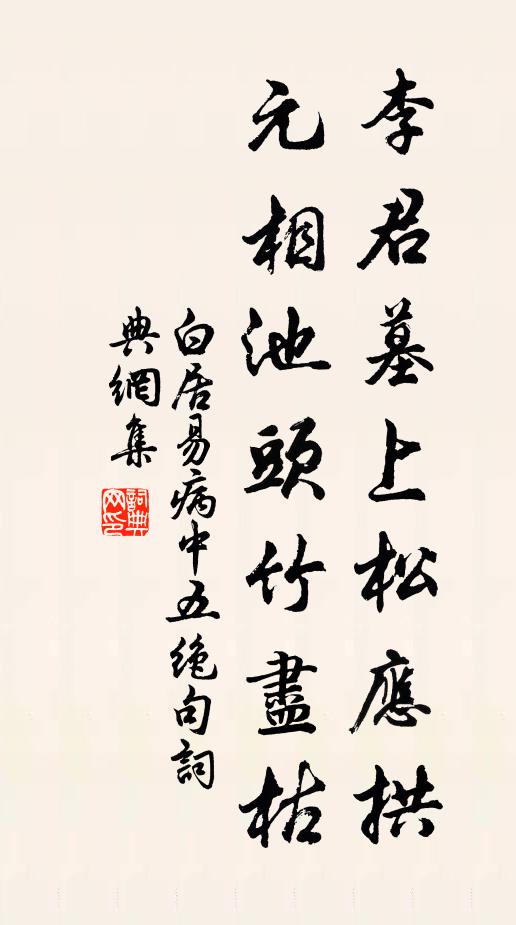 李君墓上松應拱
元相池頭竹盡枯
白居易病中五絕句詞
典網集
詞典
网印